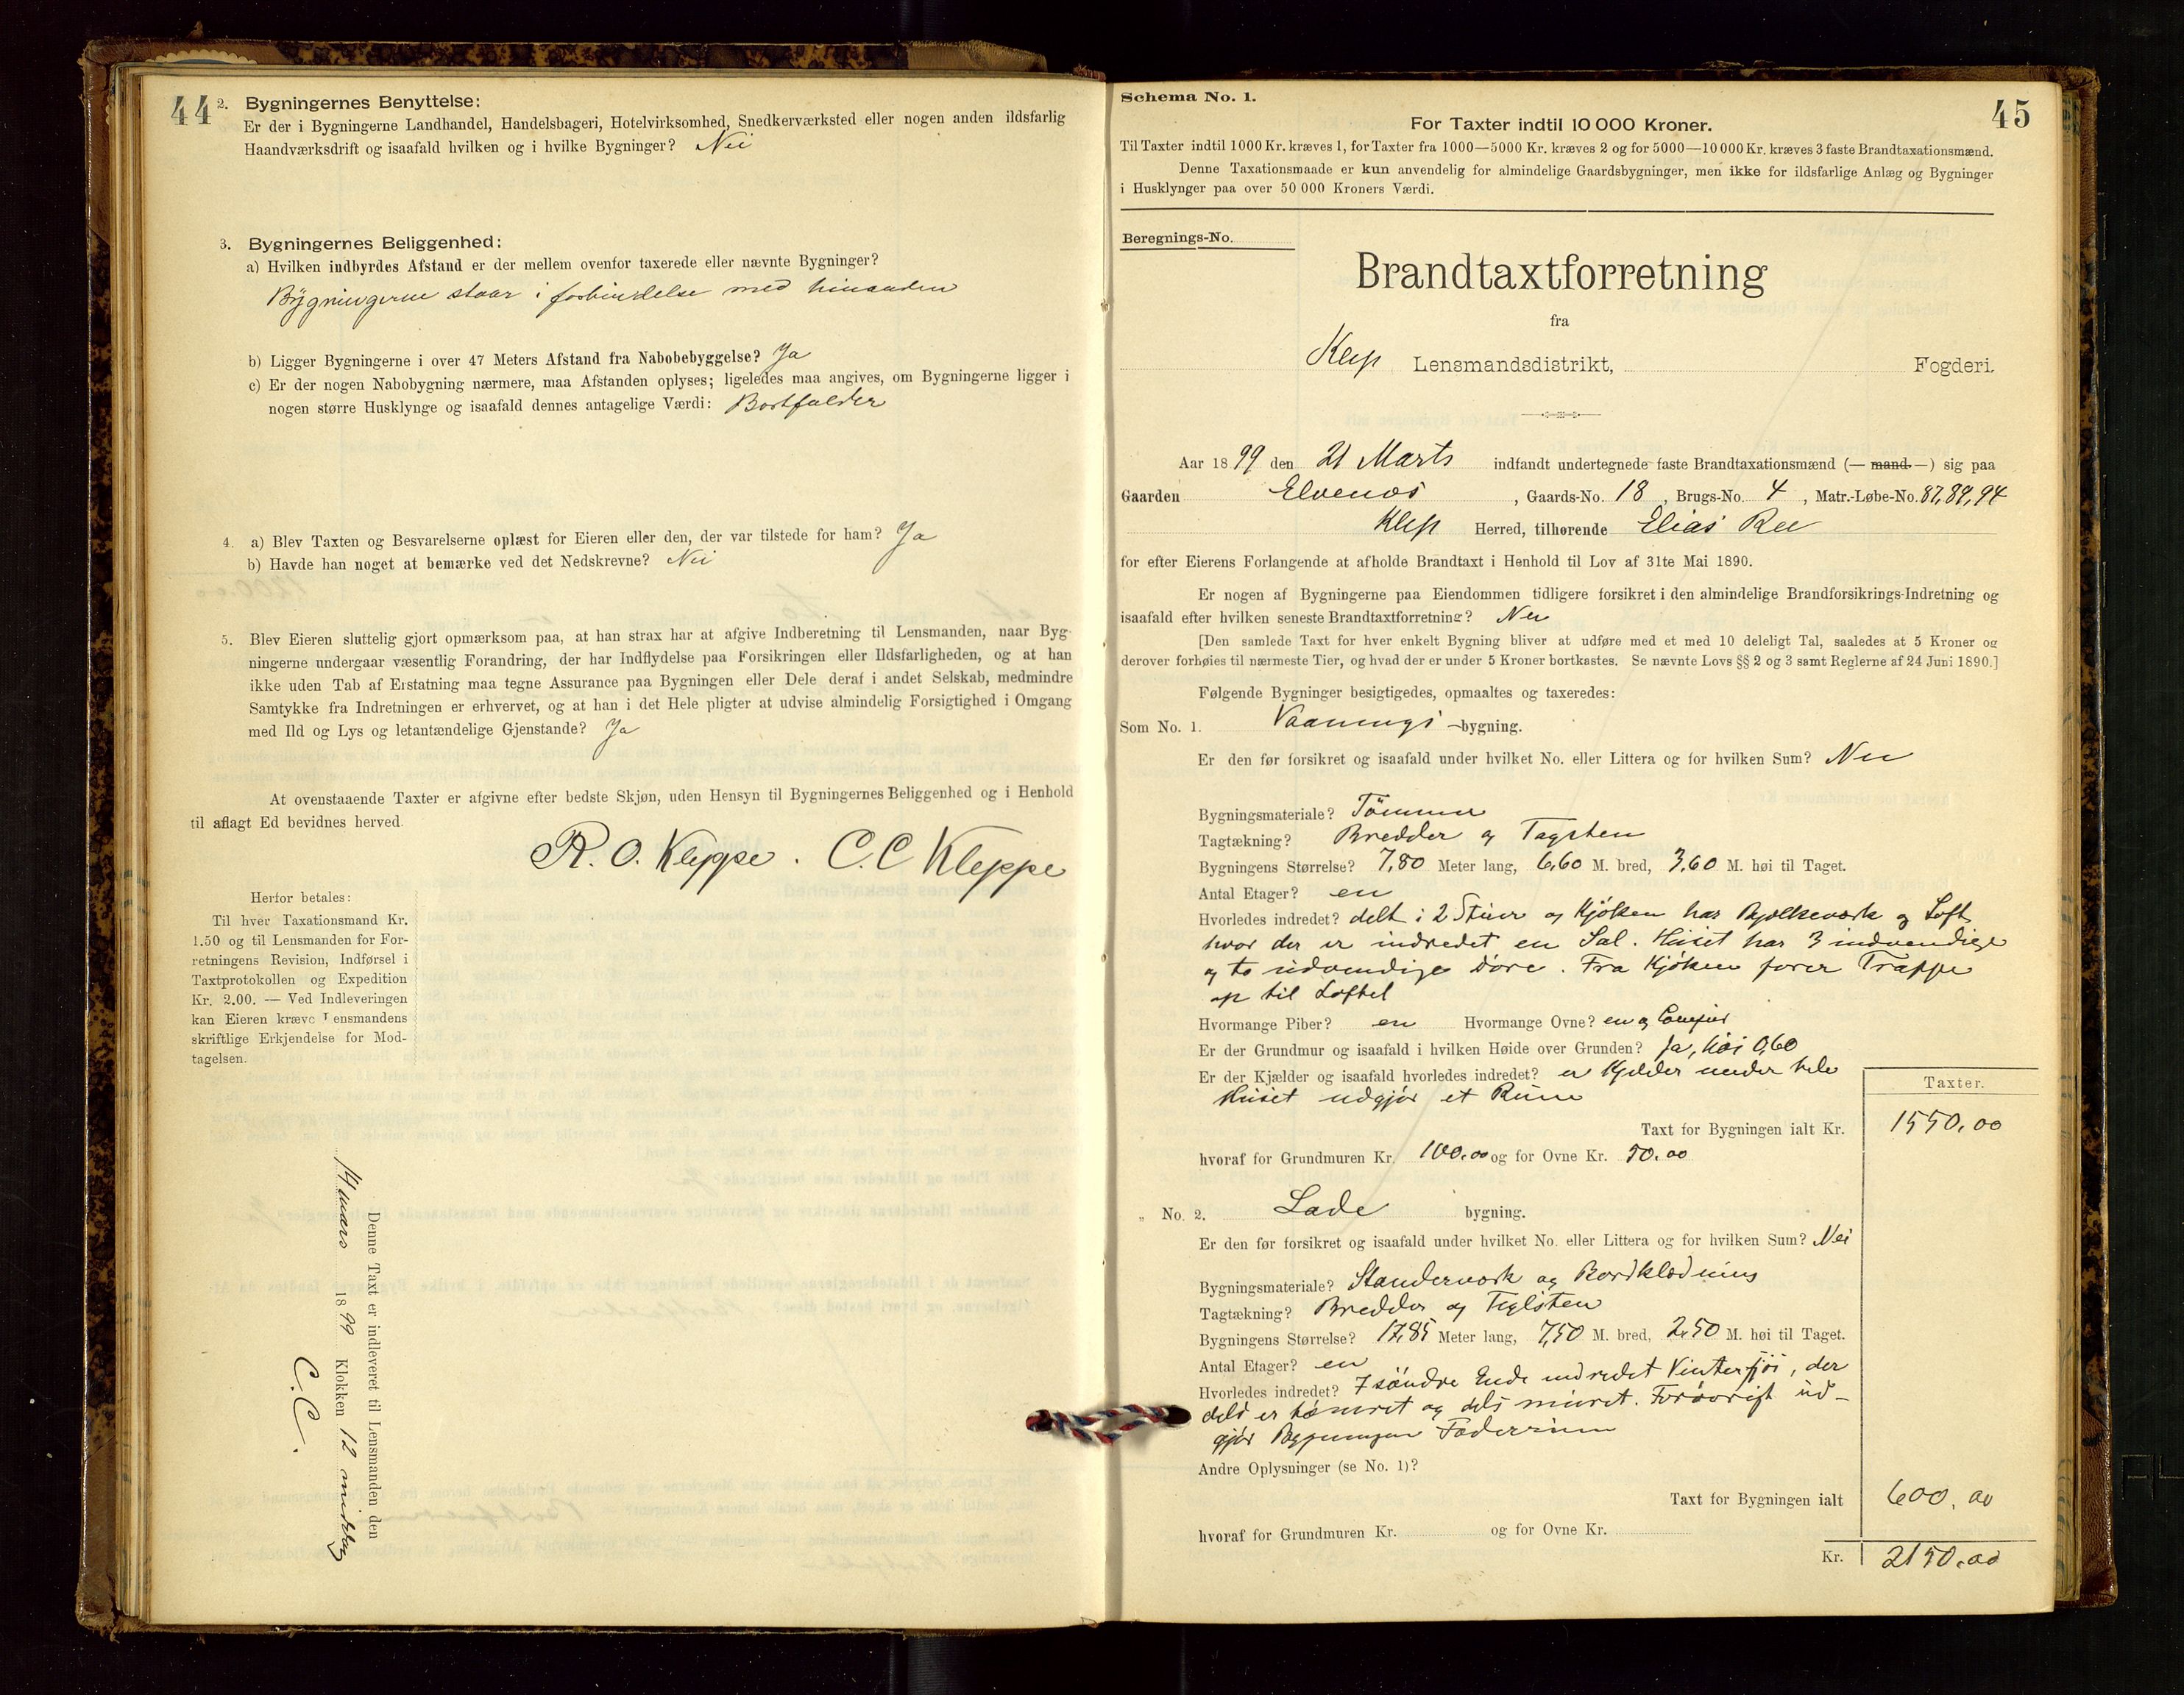 44
2. Bygningernes Benyttelse:
Er der i Bygningerne Landhandel, Handelsbageri, Hotelvirksomhed, Snedkerværksted eller nogen anden ildsfarlig
Haandværksdrift og isaafald hvilken og i hvilke Bygninger? Nei
3. Bygningernes Beliggenhed:
a) Hvilken indbyrdes Afstand er der mellem ovenfor taxerede eller nævnte Bygninger?
Bygningerne staar i forbindelse med hinanden
b) Ligger Bygningerne i over 47 Meters Afstand fra Nabobebyggelse? Ja
c) Er der nogen Nabobygning nærmere, maa Afstanden oplyses; ligeledes maa angives, om Bygningerne ligger i
nogen større Husklynge og isaafald dennes antagelige Værdi: Bortfalder
4. a) Blev Taxten og Besvarelserne oplæst for Eieren eller den, der var tilstede for ham? Ja
b) Havde han noget at bemærke ved det Nedskrevne? Nei
5. Blev Eieren sluttelig gjort opmærksom paa, at han strax har at afgive Indberetning til Lensmanden, naar Byg-
ningerne undergaar væsentlig Forandring, der har Indflydelse paa Forsikringen eller Ildsfarligheden, og at han
ikke uden Tab af Erstatning maa tegne Assurance paa Bygningen eller Dele deraf i andet Selskab, medmindre
Samtykke fra Indretningen er erhvervet, og at han i det Hele pligter at udvise almindelig Forsigtighed i Omgang
med Ild og Lys og letantændelige Gjenstande? Ja
At ovenstaaende Taxter er afgivne efter bedste Skjøn, uden Hensyn til Bygningernes Beliggenhed og i Henhold
til aflagt Ed bevidnes herved.
R. O. Kleppe. C. C Kleppe
Herfor betales:
Til hver Taxationsmand Kr.
1.50 og til Lensmanden for For-
retningens Revision, Indførsel i
Taxtprotokollen og Expedition
Kr. 2.00. — Ved Indleveringen
kan Eieren kræve Lensmandens
skriftlige Erkjendelse for Mod-
tagelsen.
Denne Taxt er indleveret til Lensmanden den
14 mars 1899 Klokken 12 middag
C. C.
45
Schema No. 1.
For Taxter indtil 10 000 Kroner.
Til Taxter indtil 1000 Kr. kræves 1, for Taxter fra 1000—5000 Kr. kræves 2 og for 5000—10 000 Kr. kræves 3 faste Brandtaxationsmænd.
Denne Taxationsmaade er kun anvendelig for almindelige Gaardsbygninger, men ikke for ildsfarlige Anlæg og Bygninger
i Husklynger paa over 50 000 Kroners Værdi.
Beregnings-No.
Brandtaxtforretning
fra
Klep Lensmandsdistrikt, Fogderi.
Aar 1899 den 21 Marts indfandt undertegnede faste Brandtaxationsmænd (— mand. —) sig paa
Gaarden Elvenæs, Gaards-No. 18, Brugs-No. 4, Matr.-Løbe-No. 87, 89, 94
Klep Herred, tilhørende Elias Ree
for efter Eierens Forlangende at afholde Brandtaxt i Henhold til Lov af 31te Mai 1890.
Er nogen af Bygningerne paa Eiendommen tidligere forsikret i den almindelige Brandforsikrings-Indretning og
isaafald efter hvilken seneste Brandtaxtforretning? Nei
[Den samlede Taxt for hver enkelt Bygning bliver at udføre med et med 10 deleligt Tal, saaledes at 5 Kroner og
derover forhøies til nærmeste Tier, og hvad der er under 5 Kroner bortkastes. Se nævnte Lovs §§ 2 og 3 samt Reglerne af 24 Juni 1890.]
Følgende Bygninger besigtigedes, opmaaltes og taxeredes:
Som No. 1. Vaanings-bygning.
Er den før forsikret og isaafald under hvilket No. eller Littera og for hvilken Sum? Nei
Bygningsmateriale? Tømmer
Tagtækning? Bredder og Tagsten
Bygningens Størrelse? 7,80 Meter lang, 6,60 M. bred, 3,60 M. høi til Taget.
Antal Etager? en
Hvorledes indredet? delt i 2 Stuer og Kjøken har Bjelkeverk og Loft
hvor der er indredet en Sal. Huset har 3 indvendige
og to udvendige Døre. Fra Kjøken fører Trappe
op til Loftet
Hvormange Piber? en Hvormange Ovne? en og Comfur
Er der Grundmur og isaafald i hvilken Høide over Grunden? Ja, høi 0,60
Er der Kjælder og isaafald hvorledes indredet? er Kjelder under hele
Huset udgjør et Rum
Taxter.
Taxt for Bygningen ialt Kr. 1550,00
hvoraf for Grundmuren Kr. 100,00 og for Ovne Kr. 50,00
„ No. 2. Lade bygning.
Er den før forsikret og isaafald under hvilket No. eller Littera og for hvilken Sum? Nei
Bygningsmateriale? Standerverk og Bordklædning
Tagtækning? Bredder og Teglsten
Bygningens Størrelse? 17,85 Meter lang, 7,50 M. bred, 2,50 M. høi til Taget.
Antal Etager? en
Hvorledes indredet? I søndre Ende indredet Vinterfjøs, der
dels er tømret og dels muret. Forøvrigt ud-
gjør Bygningen Foderrum
Andre Oplysninger (se No. 1)?
Taxt for Bygningen ialt 600,00
hvoraf for Grundmuren Kr. og for Ovne Kr.
Kr. 2150,00